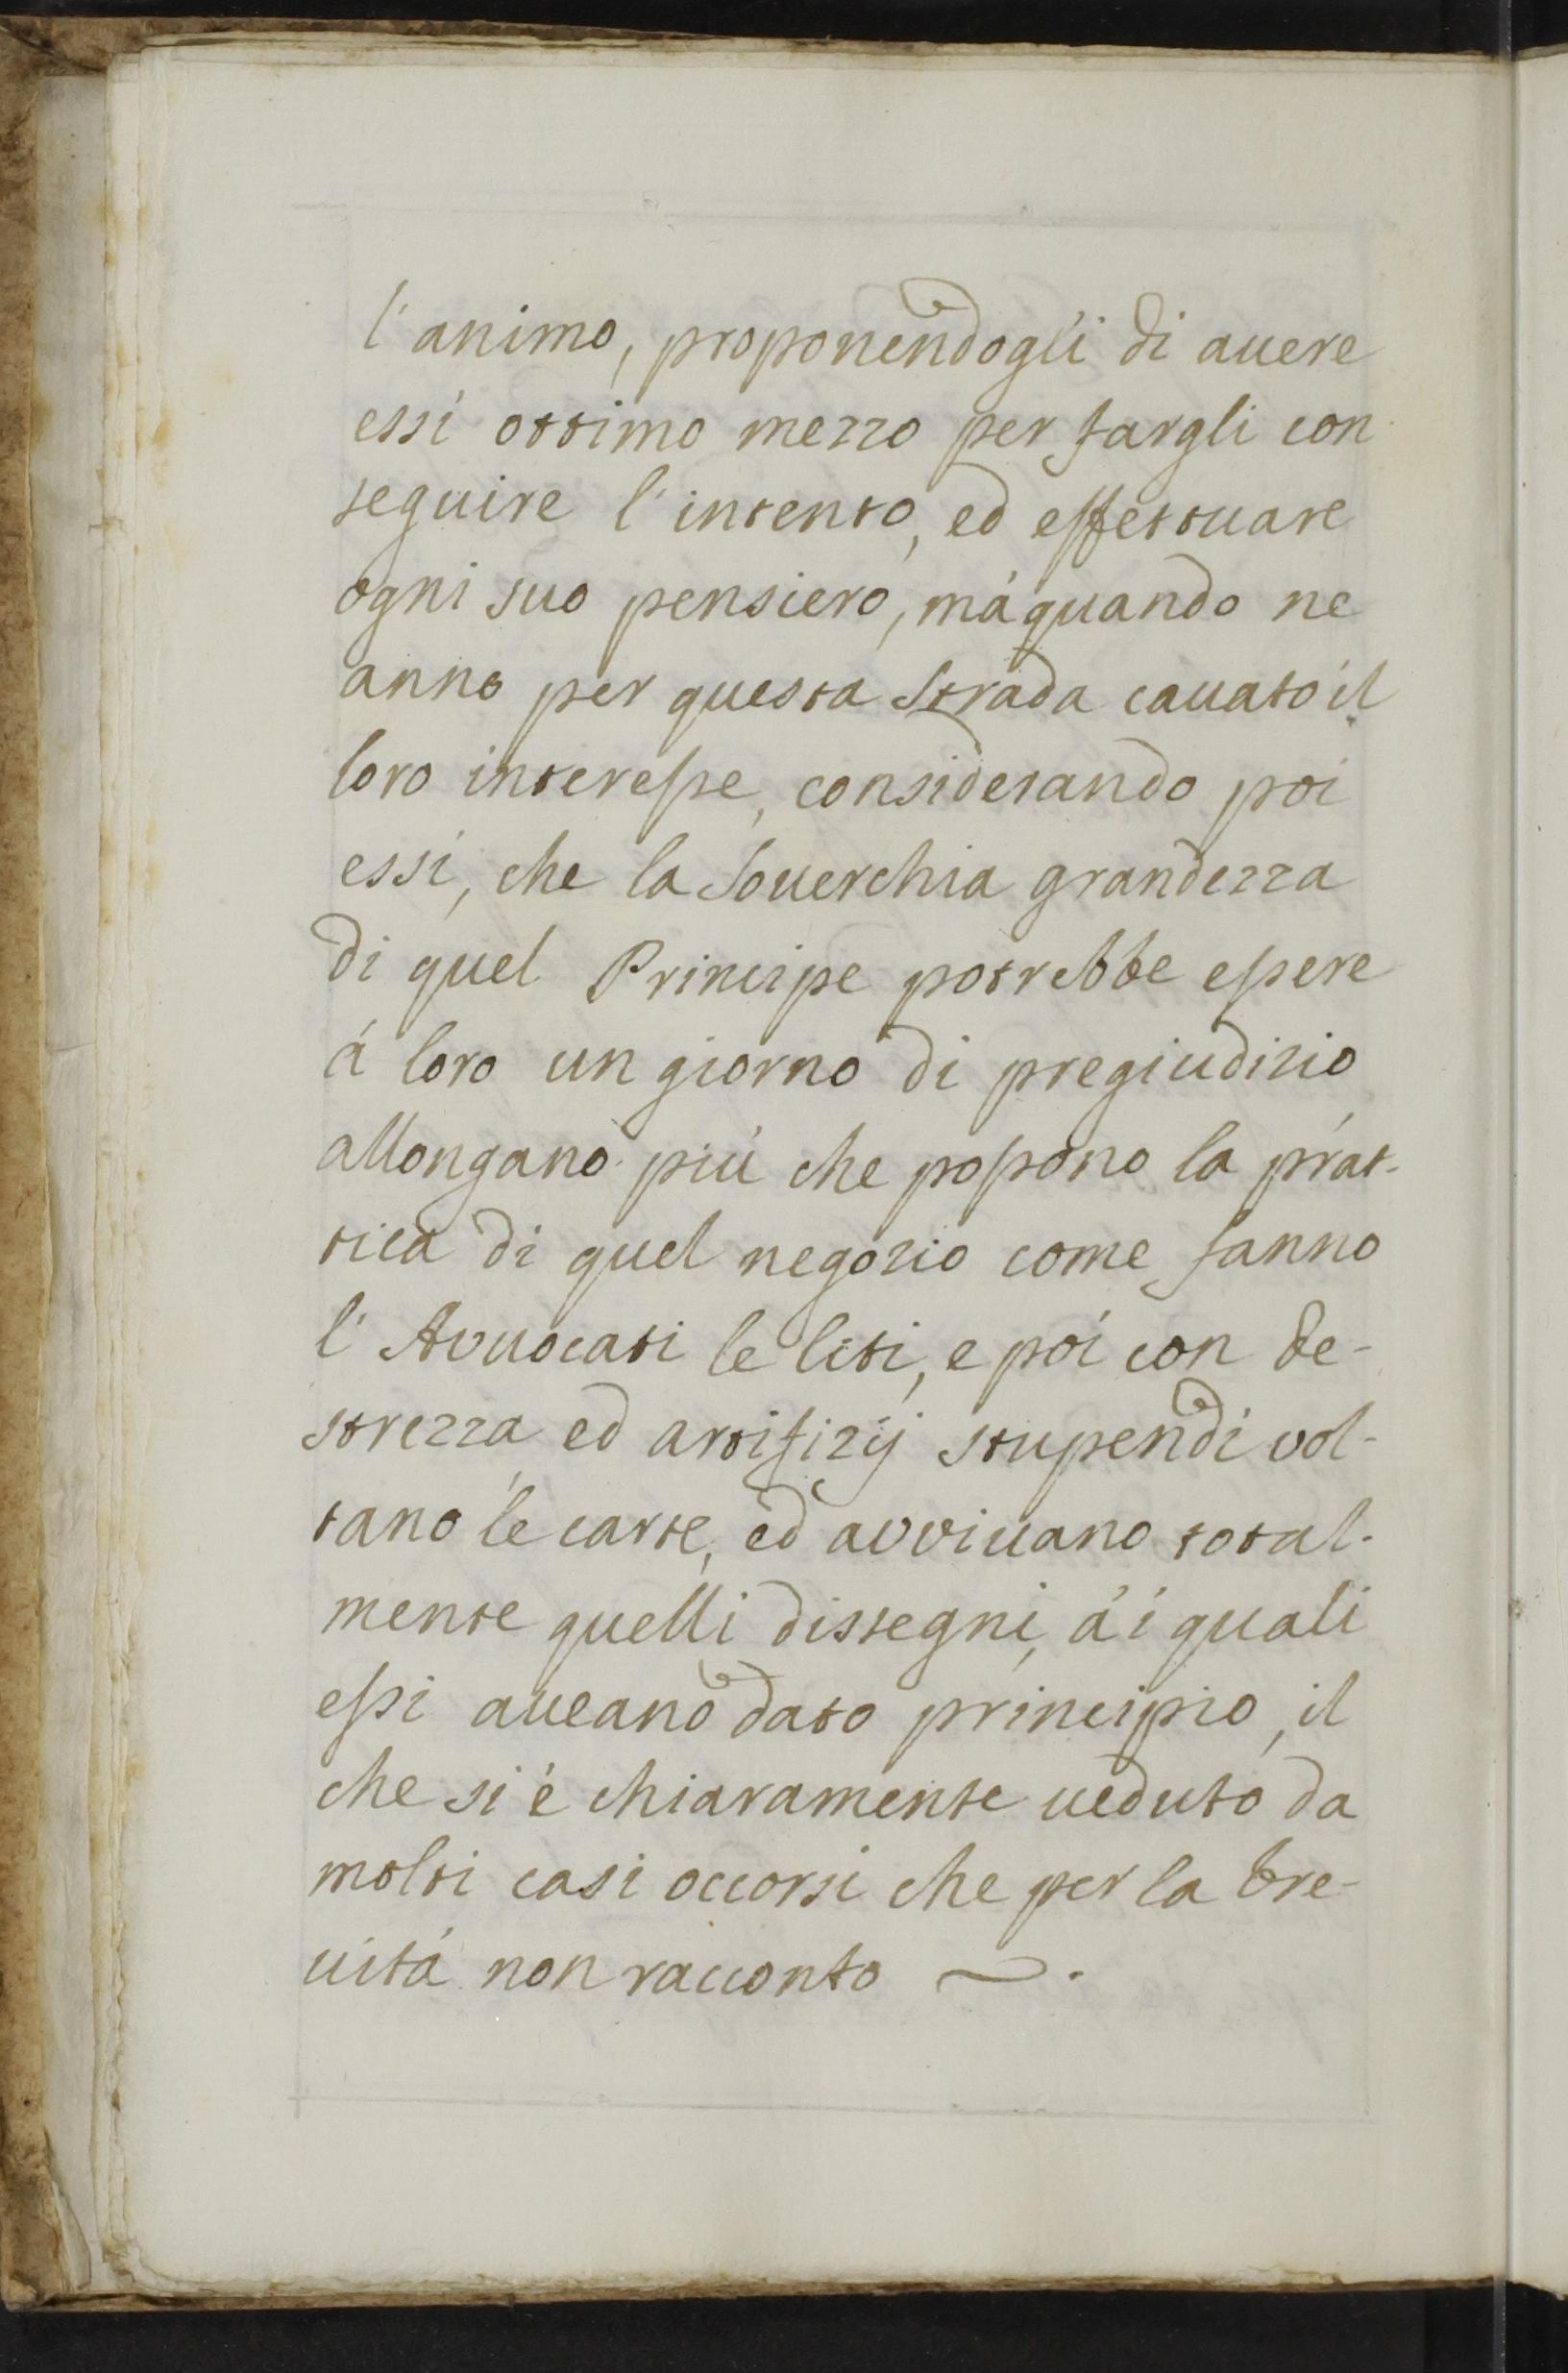 l'animo, proponendogli di auere
essi ottimo mezzo per fargli con
seguire l'intento, ed effettuare
ogni suo pensiero, má quando ne
anno per questa Strada cauato il
loro interesse, considerando poi
essi, che la Souerchia grandezza
di quel Principe potrebbe essere
á loro un giorno di pregiudizio
allongano più che possono la prat-
tica di quel negozio come fanno
l'Avuocati le liti, e poi con de-
strezza ed artifizij stupendi vol-
tano le carte, ed avviuano total-
mente quelli dissegni, á i quali
essi aueano dato principio, il
che si é chiaramente ueduto da
molti casi occorsi che per la bre-
uitá non racconto ~.